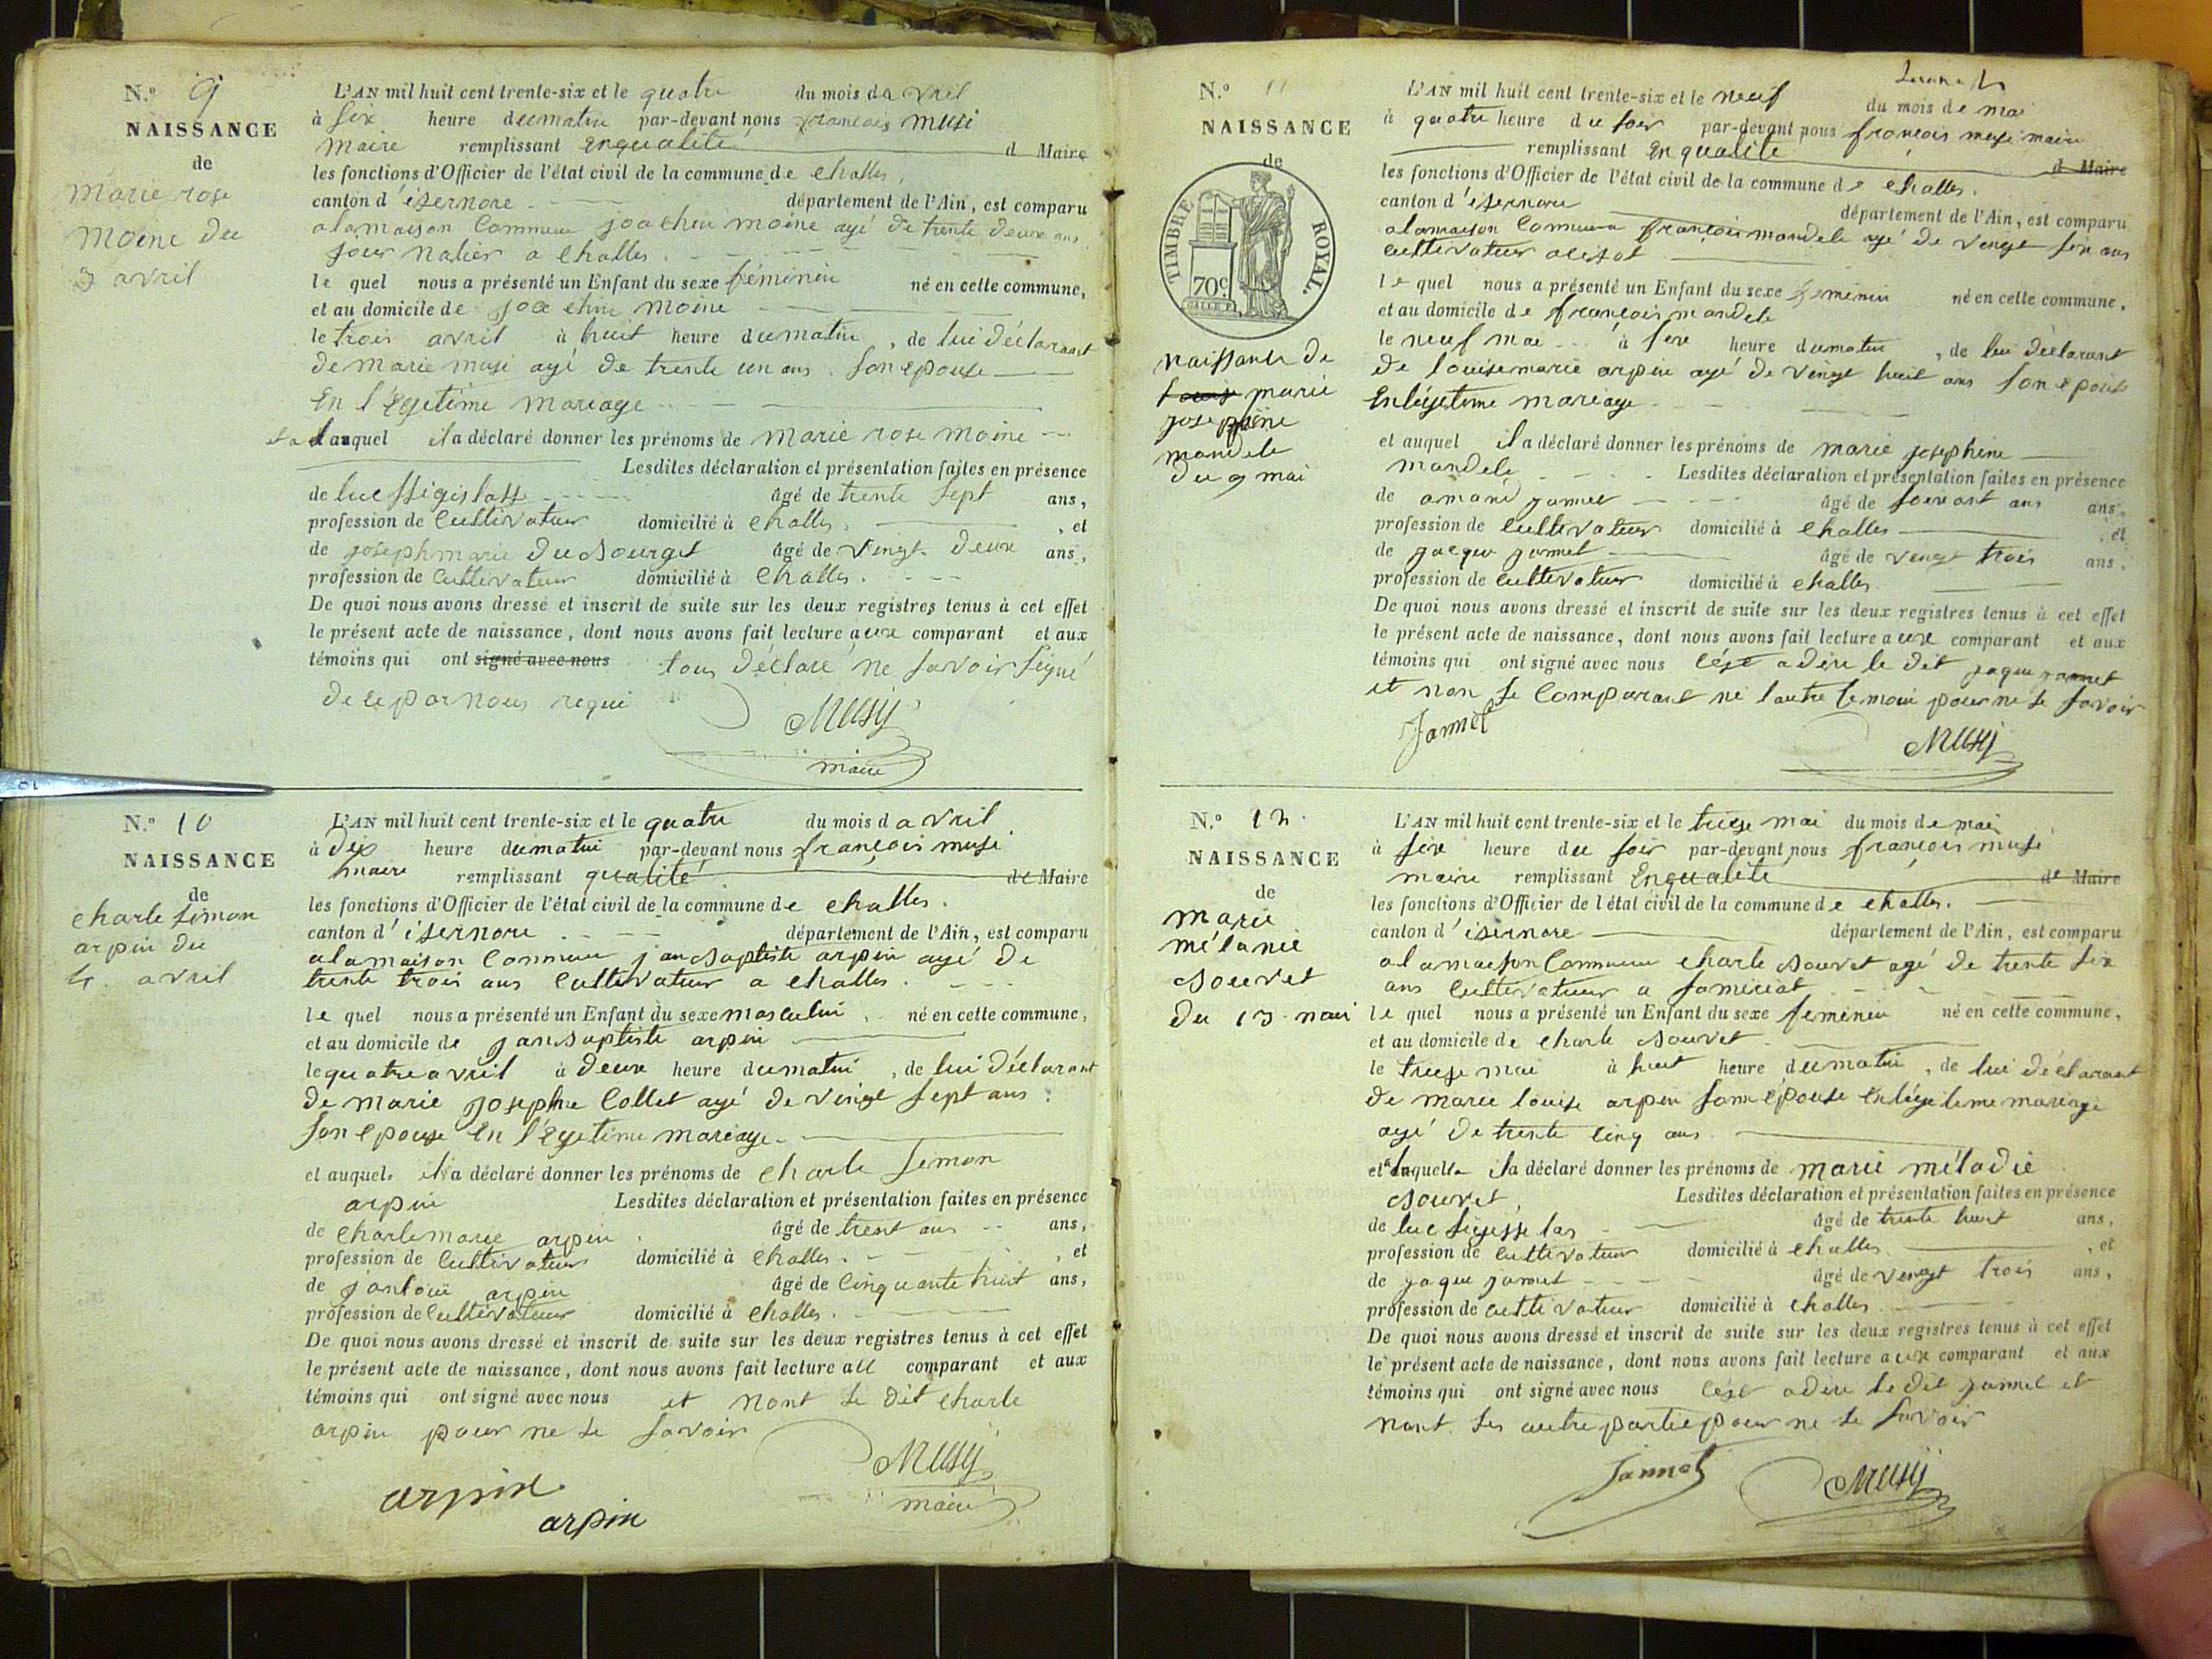 N.º 9
NAISSANCE
de
Marie rose
Moine du
3 avril
L'AN mil huit cent trente-six et le quatre du mois d avril
à six heure du matin par-devant nous françois musi
maire remplissant en qualité d Maire
les fonctions d'Officier de l'état civil de la commune de challes,
canton d'isernore département de l'Ain, est comparu
a la maison commune joachin moine agé de trente deux ans
journalier a challes.
le quel nous a présenté un Enfant du sexe féminin né en cette commune,
et au domicile de joachin moine
le trois avril à huit heure du matin, de lui déclarant
de marie musi agé de trente un ans. son epouse
en légetime mareage
auquel il a déclaré donner les prénoms de marie rose moine
Lesdites déclaration et présentation faites en présence
de luc âgé de trente sept ans,
profession de cultivateur domicilié à challes, et
de joseph marie du bourget âgé de vingt deux ans,
profession de cultivateur domicilié à challes.
De quoi nous avons dressé et inscrit de suite sur les deux registres tenus à cet effet
le présent acte de naissance, dont nous avons fait lecture a ux comparant et aux
témoins qui ont signé avec nous tous déclaré ne savoir signé
de ce par nous requi
Musy
maire
N.º 10
NAISSANCE
de
charle simon
arpin du
4 avril
L'AN mil huit cent trente-six et le quatre du mois d avril
à dix heure du matin par-devant nous françois musi
maire remplissant qualité de Maire
les fonctions d'Officier de l'état civil de la commune de challes.
canton d'isernore département de l'Ain, est comparu
a la maison commune jan baptiste arpin agé de
trente trois ans cultivateur a challes.
le quel nous a présenté un Enfant du sexe masculin né en cette commune,
et au domicile de jan baptiste arpin
le quatre avril à deux heure du matin, de lui déclarant
de marie josephe collet agé de vingt sept ans
son epouse en légetime mareage
et auquel il a déclaré donner les prénoms de charle simon
arpin Lesdites déclaration et présentation faites en présence
de charle marie arpin âgé de trent ans ans,
profession de cultivateur domicilié à challes. , et
de arpin âgé de cinquante huit ans,
profession de cultivateur domicilié à challes.
De quoi nous avons dressé et inscrit de suite sur les deux registres tenus à cet effet
le présent acte de naissance, dont nous avons fait lecture au comparant et aux
témoins qui ont signé avec nous et nont le dit charle
arpin pour ne le savoir
Musy
maire
arpin
arpin
N.º 11
NAISSANCE
de
TIMBRE ROYAL.
70c
naissance de
marie
josephine
mandele
du 9 mai
L'AN mil huit cent trente-six et le neuf du mois de mai
à quatre heure du soir par-devant nous françois musi maire
remplissant en qualité d Maire
les fonctions d'Officier de l'état civil de la commune de challes.
canton d'isernore département de l'Ain, est comparu
a la maison commune françois mandele agé de vingt six ans
cultivateur
le quel nous a présenté un Enfant du sexe feminin né en cette commune,
et au domicile de françois mandele
le neuf mai à six heure du matin, de lui déclarant
de louise marie arpin agé de vingt huit ans son epouse
en légetime mareage
et auquel il a déclaré donner les prénoms de marie josephine
mandele Lesdites déclaration et présentation faites en présence
de amand jamet âgé de soixant ans ans,
profession de cultivateur domicilié à challes , et
de jaque jamet âgé de vingt trois ans,
profession de cultivateur domicilié à challes
De quoi nous avons dressé et inscrit de suite sur les deux registres tenus à cet effet
le présent acte de naissance, dont nous avons fait lecture a ux comparant et aux
témoins qui ont signé avec nous cést a dire le dit jaque jamet
et non le comparant ni lautre temoin pour ne le savoir
Musy
N.º 12
NAISSANCE
de
marie
mélanie
bouvet
du 13 mai
L'AN mil huit cent trente-six et le treize mai du mois de mai
à six heure du soir par-devant nous françois musi
maire remplissant en qualité de Maire
les fonctions d'Officier de l'état civil de la commune de challes.
canton d'isernore département de l'Ain, est comparu
a la maison commune charle bouvet agé de trente six
ans cultivateur a
le quel nous a présenté un Enfant du sexe feminin né en cette commune,
et au domicile de charle bouvet
le treize mai à huit heure du matin, de lui déclarant
de marie louise arpin son épouse en légetime mareage
agé de trente cinq ans
et a laquelle il a déclaré donner les prénoms de marie méladie
bouvet, Lesdites déclaration et présentation faites en présence
de luc âgé de trente huit ans,
profession de cultivateur domicilié à challes , et
de jaque jamet âgé de vingt trois ans,
profession de cultivateur domicilié à challes
De quoi nous avons dressé et inscrit de suite sur les deux registres tenus à cet effet
le présent acte de naissance, dont nous avons fait lecture a ux comparant et aux
témoins qui ont signé avec nous cést a dire le dit jamet et
nont les autre partie pour ne le savoir
Musy